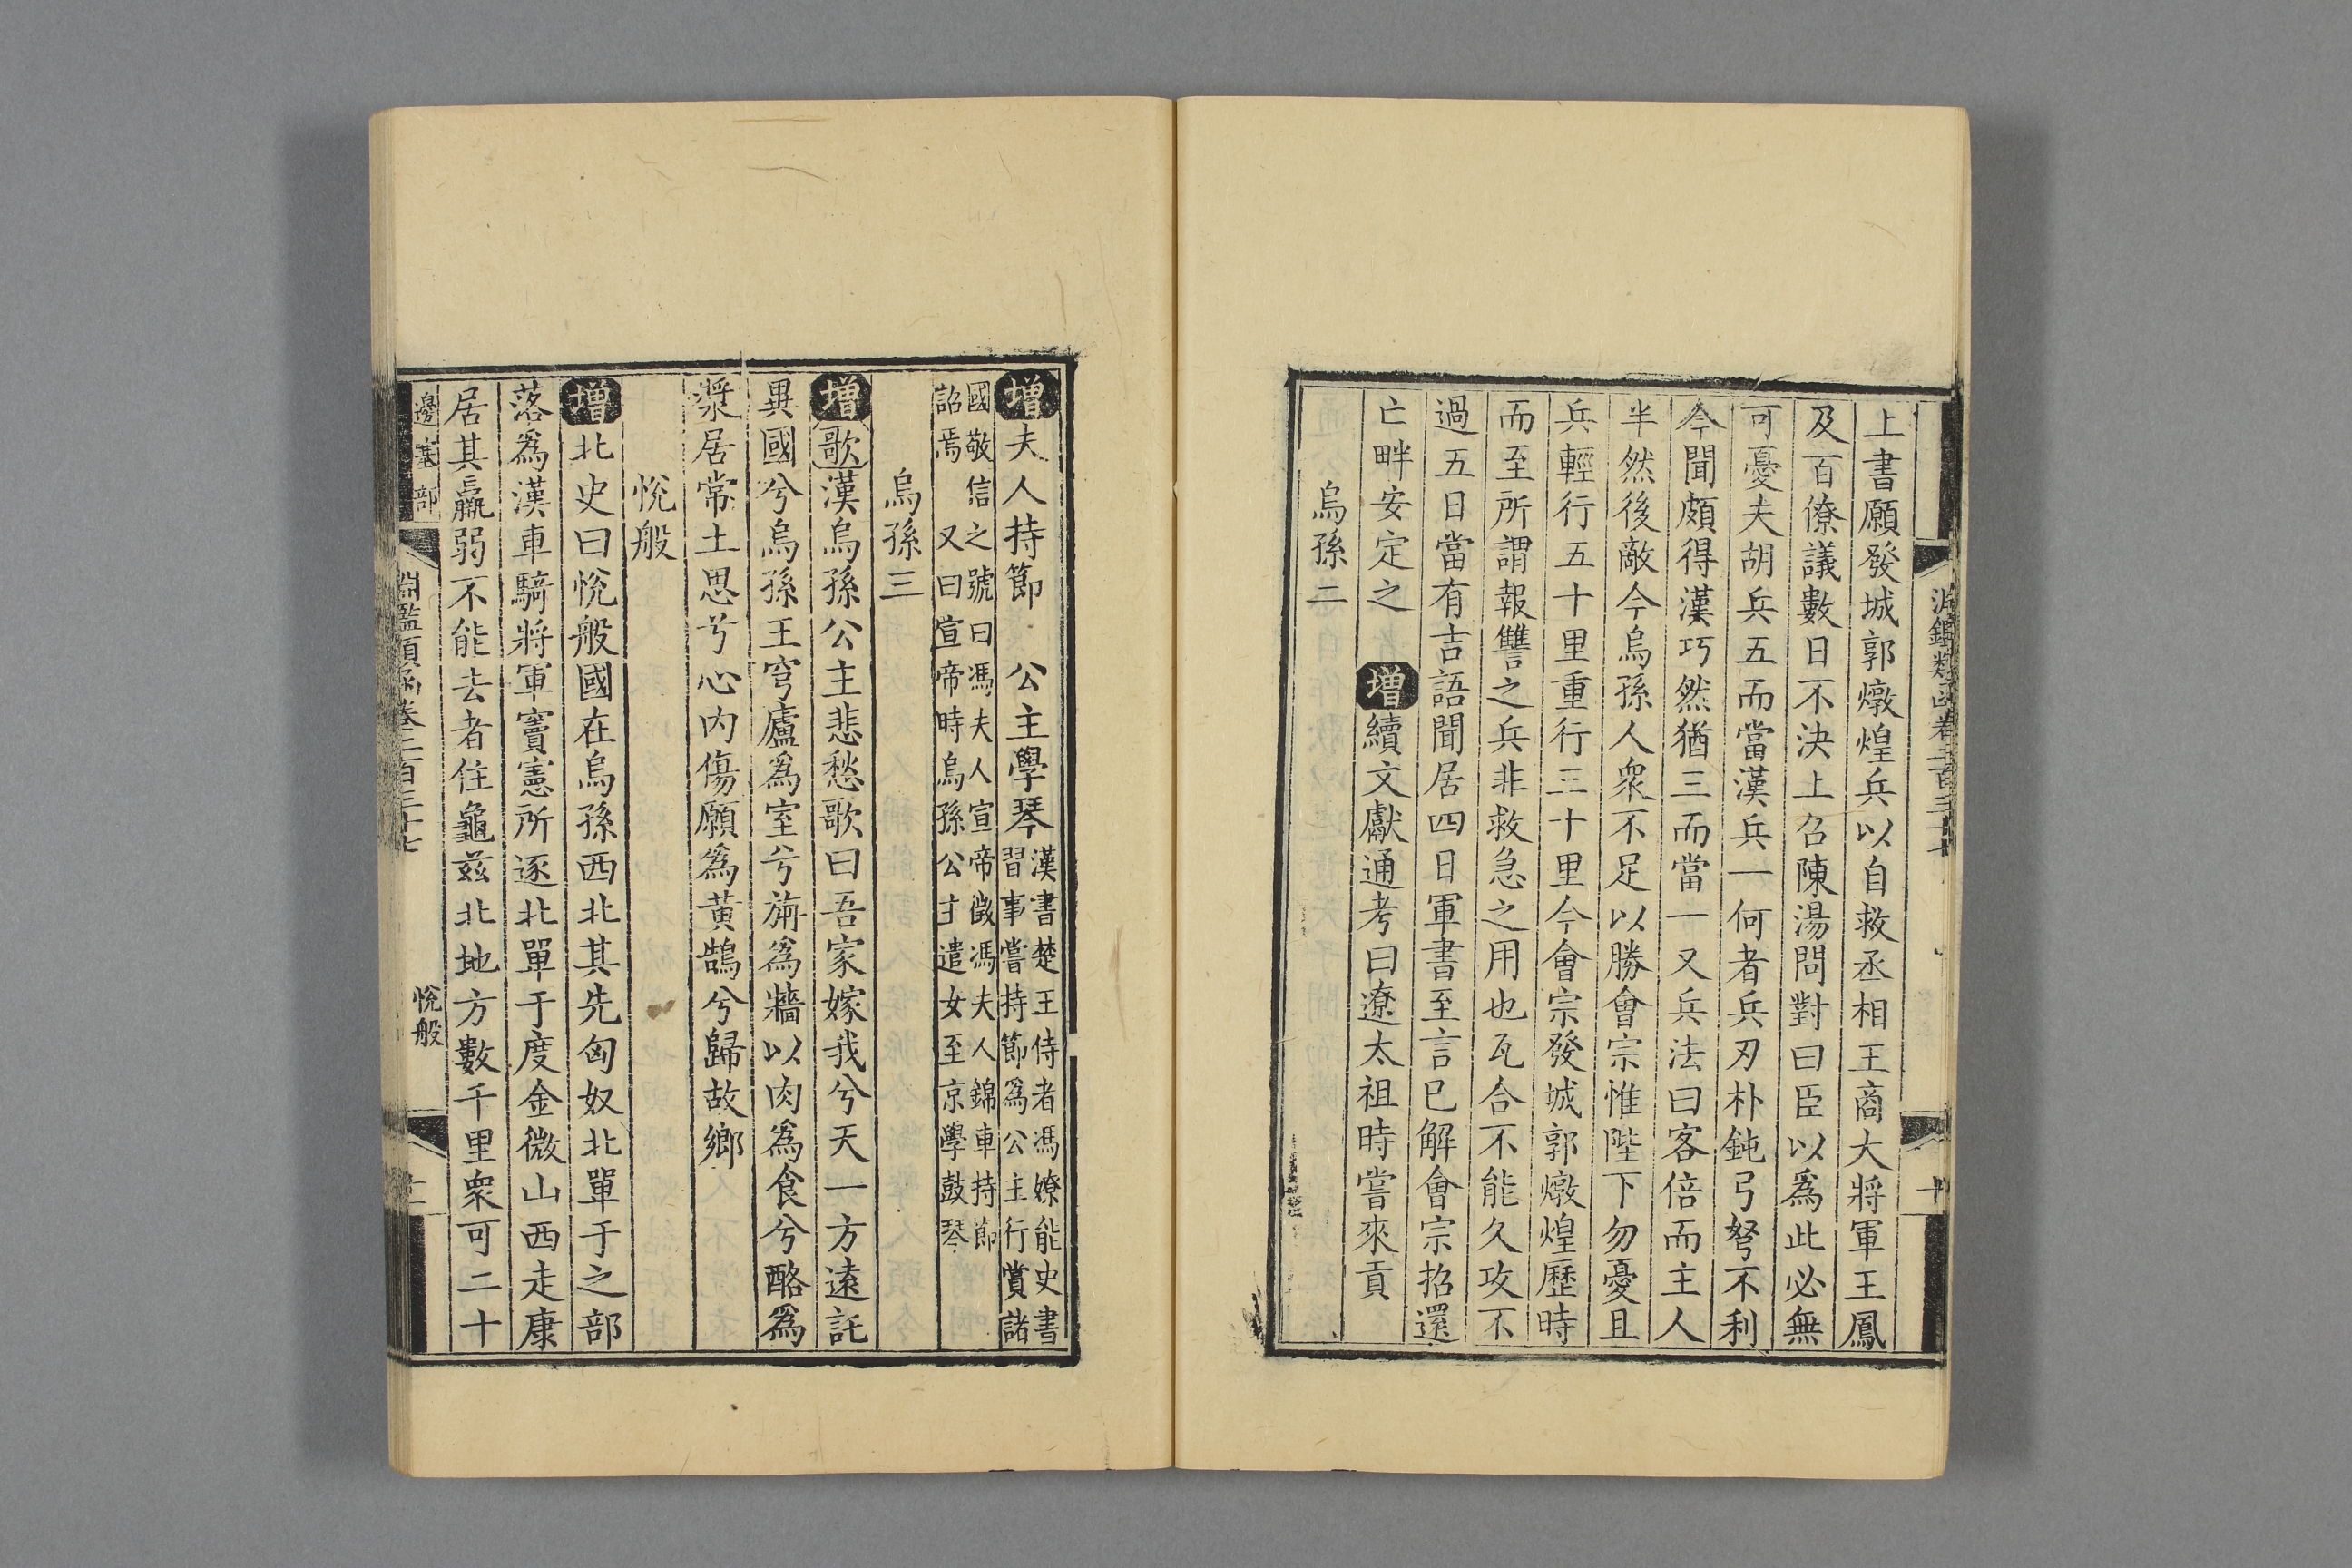 上書願發城郭燉煌兵以自救丞相王商大將軍王鳳
及百僚議數日不決上召陳湯問對曰臣以爲此必無
可憂夫胡兵五而當漢兵一何者兵刃朴鈍弓弩不利
今聞頗得漢巧然猶三而當一又兵法曰客倍而主人
半然後敵今烏孫人衆不足以勝會宗惟陛下勿憂且
兵輕行五十里重行三十里今會宗發城郭燉煌歷時
而至所謂報讐之兵非救急之用也瓦合不能久攻不
過五日當有吉語聞居四日軍書至言已解會宗招還
亡畔安定之 增續文獻通考曰遼太祖時嘗來貢
烏孫二
增夫人持節 公主學琴漢書楚王侍者馮嫽能史書
習事嘗持節爲公主行賞諸
國敬信之號曰馮夫人宣帝徵馮夫人錦車持節
詔焉 又曰宣帝時烏孫公主遣女至京學鼓琴
烏孫三
增歌漢烏孫公主悲愁歌曰吾家嫁我兮天一方遠託
異國兮烏孫王穹廬爲室兮旃爲牆以肉爲食兮酪爲
漿居常土思兮心內傷願爲黃鵠兮歸故鄉
悅般
增北史曰悅般國在烏孫西北其先匈奴北單于之部
落爲漢車騎將軍竇憲所逐北單于度金微山西走康
居其羸弱不能去者住龜茲北地方數千里衆可二十
邊塞部 淵鑑類函卷二百三十七 悅般